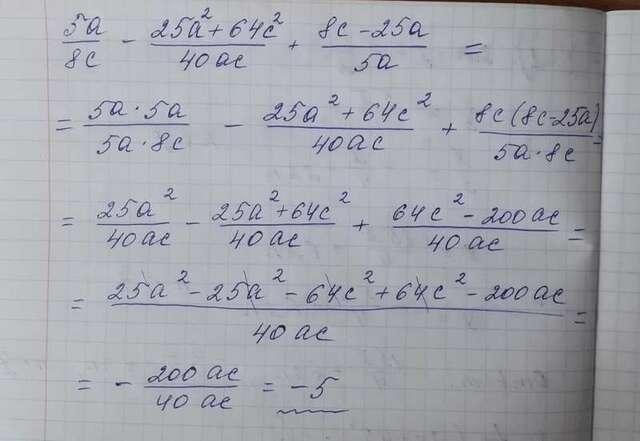 5a/8c - (25a² + 64c²)/40ac + (8c - 25a)/5a =
= (5a · 5a)/(5a · 8c) - (25a² + 64c²)/40ac + 8c(8c - 25a)/(5a · 8c) =
= 25a²/40ac - (25a² + 64c²)/40ac + (64c² - 200ac)/40ac =
= (25a² - 25a² - 64c² + 64c² - 200ac)/40ac =
= - 200ac/40ac = -5